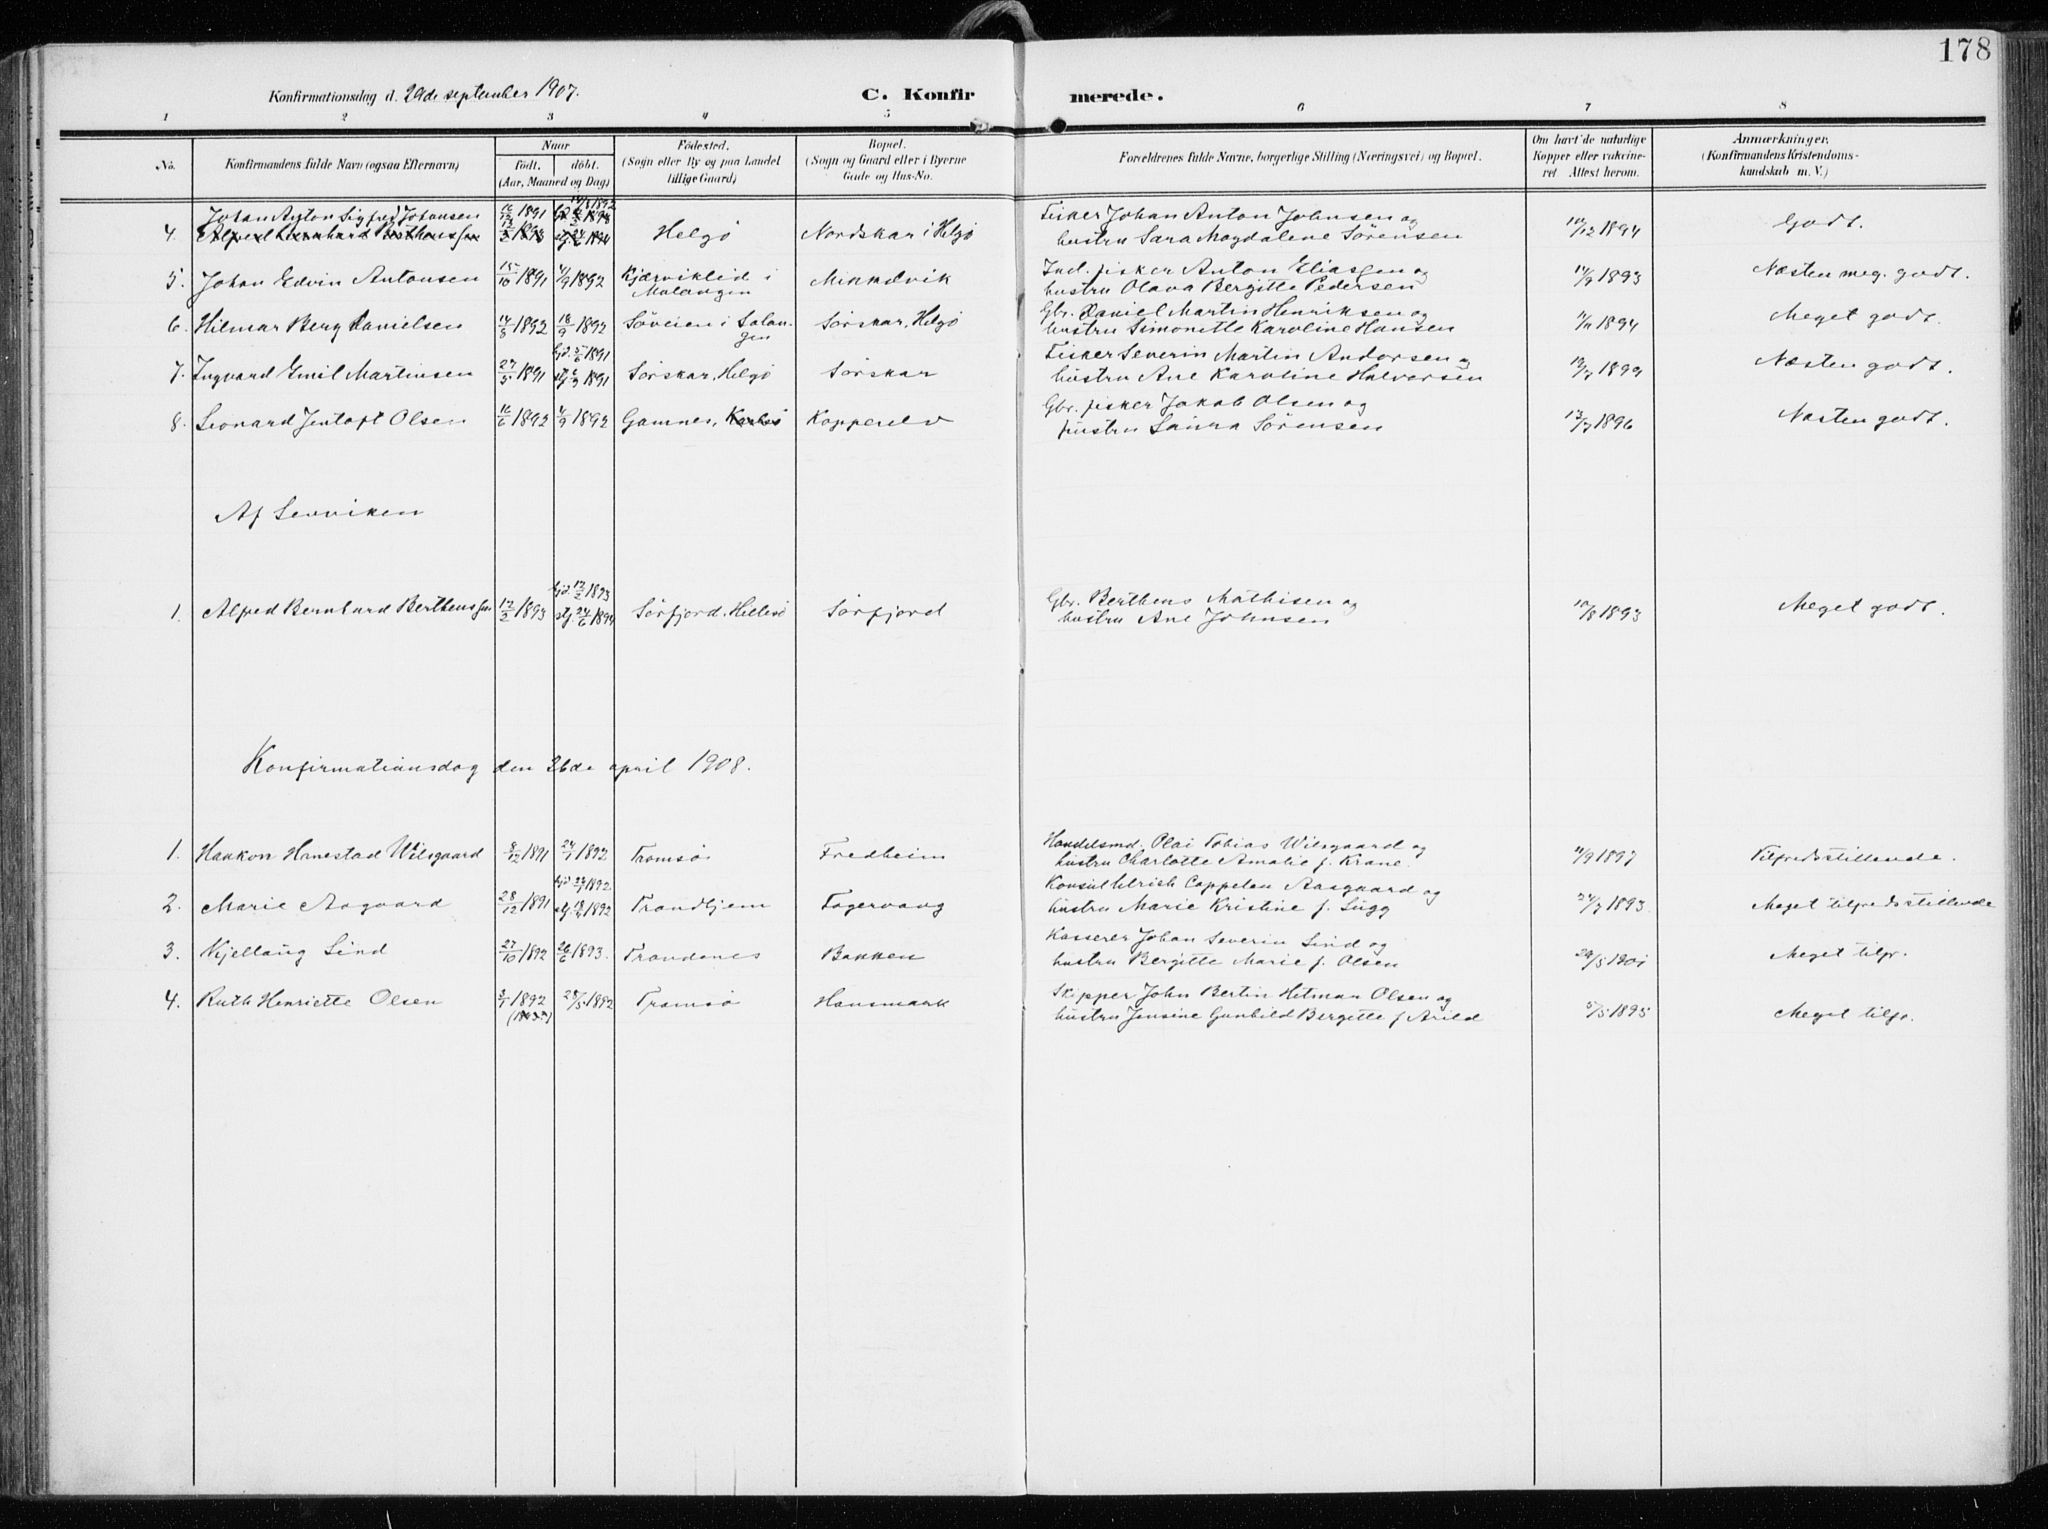 178
Konfirmationsdag d. 29de september 1907. C. Konfir merede.
1 2 3 4 5 6 7 8
No. Konfirmandens fulde Navn (ogsaa Efternavn) Naar født. døbt. (Aar, Maaned og Dag) Fødested. (Sogn eller By og paa Landet tillige Gaard) Bopæl. (Sogn og Gaard eller i Byerne Gade og Hus-No. Forældrenes fulde Navne, borgerlige Stilling (Næringsvei) og Bopæl. Om havt de naturlige Kopper eller vakcineret Attest herom. Anmærkninger. (Konfirmandens Kristendomskundskab m. V.)
Johan Anton Sigfred Johansen 16/12 1891 Fisker Johan Anton Johnsen og
4. Alfred Bernhard Berthenssen Helgø Nordskar i Helgø hustru Sara Magdalene Sørensen 10/12 1894 Godt.
5. Johan Edvin Antonsen 15/10 1891 4/9 1892 Kjærviklid i Malangen Mikkelvik Ind. fisker Anton Eliassen og
hustru Olava Bergitte Pedersen 14/9 1893 Næsten meg. godt.
6. Hilmar Berg Danielsen 14/8 1892 18/9 1892 Søveien i Salangen Sørskar, Helgø Gbr. Daniel Martin Henriksen og
hustru Simonette Karoline Hansen 1894 Meget godt.
7. Ingvard Emil Martinsen 27/5 1891 hjd. 5/6 1891 Sørskar, Helgø Sørskar Fisker Severin Martin Andorsen og
hustru Ane Karoline Halvorsen 1899 Næsten godt.
8. Leonard Jentoft Olsen 16/6 1892 4/9 1892 Gamnes, Karlsø Kopperelv Gbr. fisker Jakob Olsen og
hustru Laura Sørensen 13/7 1896 Næsten godt.
Af Lenviken
1. Alfred Bernhard Berthenssen 12/2 1893 hjd. 12/2 1893 stf. 24/6 1894 Sørfjord, Hillesø Sørfjord Gbr. Berthens Mathisen og
hustru Ane Johnsen 10/8 1893 Meget godt.
Konfirmationsdag den 26de april 1908.
1. Haakon Hanestad Wilsgaard 8/12 1891 24/1 1892 Tromsø Fredheim Handelsmd. Olai Tobias Wilsgaard og
hustru Charlotte Amalie f. Krane. 11/9 1897 Tilfredsstillende.
2. Marie Aagaard 28/12 1891 Trondhjem Fagervang Konsul Ulrich Cappelen Aasgaard og
hustru Marie Kristine f. Sugg 24/7 1893 Meget tilfredsstillende
3. Kjellaug Lind 27/10 1892 26/6 1893. Trondenes Bakken Kasserer Johan Severin Lind og
hustru Bergitte Marie f. Olsen 29/5 1901 Meget tilfr.
4. Ruth Henriette Olsen 3/1 1892 28/5 1892 Tromsø Hansmark Skipper John Bertin Hitman Olsen og
hustru Jensine Gunhild Bergette f Arild 5/5 1895 Meget tilfr.